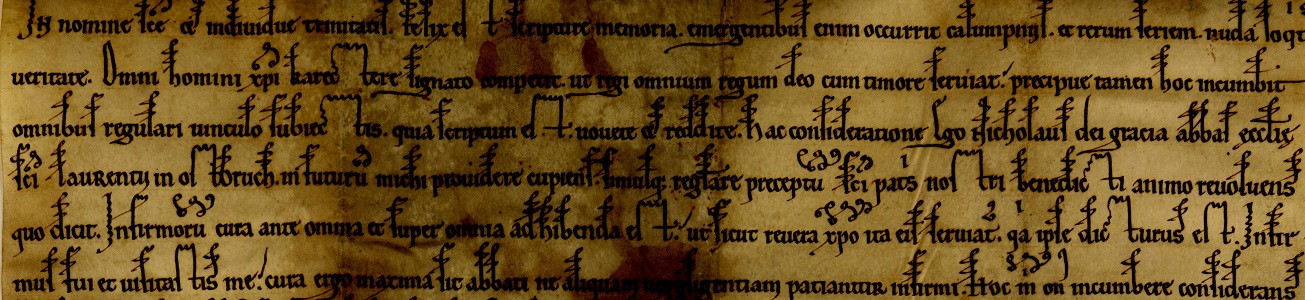 In nomine sce et individue trinitatis. Felix est scripture memoria. emergentibus enim occurrit calumpniis. et rerum seriem nuda loqt
ueritate. Omni homini xpi karactere signato competit. ut regi omnium regum deo cum timore seruiat. precipue tamen hoc incumbit
omnibus regulari uinculo subiectis. quia scriptum est. uouete et reddite. Hac consideratione Ego Nicholaus dei gracia abbas ecclie
sci Laurentii in ostbruch. in futurū michi prouidere cupiens. simulq; reglare preceptū sci pats nostri benedicti animo reuoluens
quo dicit. Infirmorū cura ante omnia et super omnia adhibenda est. ut sicut reuera xpo ita eis seruiat. qa ipse dicturus est. Infir
mus fui et uisitastis me. cura ergo maxima sit abbati ne aliquam negligentiam patiantur infirmi. Hoc in on incumbere considerans